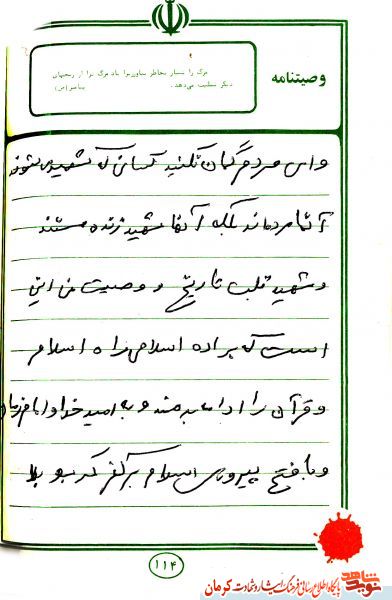 وصیتنامه
مرگ را بسیار بخاطر بیاورید تا یاد مرگ ترا از رنجهای
دیگر تسلیت می‌دهد. پیامبر(ص)
وای مردم گمان نکنید کسانی که شهید می‌شوند
آنها مرده‌اند بلکه آنها شهید زنده هستند
و شهید قلب تاریخ و وصیت من این
است که براده اسلامی راه اسلام
و قرآن را ادامه بدهند و به امید خدا و امام زمان
و با فتح پیروی اسلام بر کفر کربو بلا
۱۱۴
شاهد
نوید
پایگاه اطلاع رسانی فرهنگ ایثار و شهادت کرمان